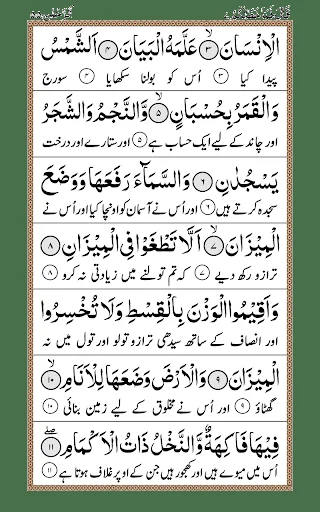 الْاِنْسَانَ ۙ﴿۳﴾ عَلَّمَهُ الْبَيَانَ ﴿۴﴾ اَلشَّمْسُ
پیدا کیا ﴿۳﴾ اُس کو بولنا سکھایا ﴿۴﴾ سورج
وَالْقَمَرُ بِحُسْبَانٍ ۙ﴿۵﴾ وَّالنَّجْمُ وَالشَّجَرُ
اور چاند کے لیے ایک حساب ہے ﴿۵﴾ اور ستارے اور درخت
يَسْجُدٰنِ ﴿۶﴾ وَالسَّمَآءَ رَفَعَهَا وَوَضَعَ
سجدہ کرتے ہیں ﴿۶﴾ اور اُس نے آسمان کو اونچا کیا اور اُس نے
الْمِيْزَانَ ۙ﴿۷﴾ اَلَّا تَطْغَوْا فِى الْمِيْزَانِ ﴿۸﴾
ترازو رکھ دیے ﴿۷﴾ کہ تم تولنے میں زیادتی نہ کرو ﴿۸﴾
وَاَقِيْمُوا الْوَزْنَ بِالْقِسْطِ وَلَا تُخْسِرُوا
اور انصاف کے ساتھ سیدھی ترازو تولو اور تول میں نہ
الْمِيْزَانَ ﴿۹﴾ وَالْاَرْضَ وَضَعَهَا لِلْاَنَامِ ۙ﴿۱۰﴾
گھٹاؤ ﴿۹﴾ اور اُس نے مخلوق کے لیے زمین بنائی ﴿۱۰﴾
فِيْهَا فَاكِهَةٌ وَّالنَّخْلُ ذَاتُ الْاَكْمَامِ ﴿۱۱﴾
اُس میں میوے ہیں اور کھجور ہیں جن کے اوپر غلاف ہوتا ہے ﴿۱۱﴾